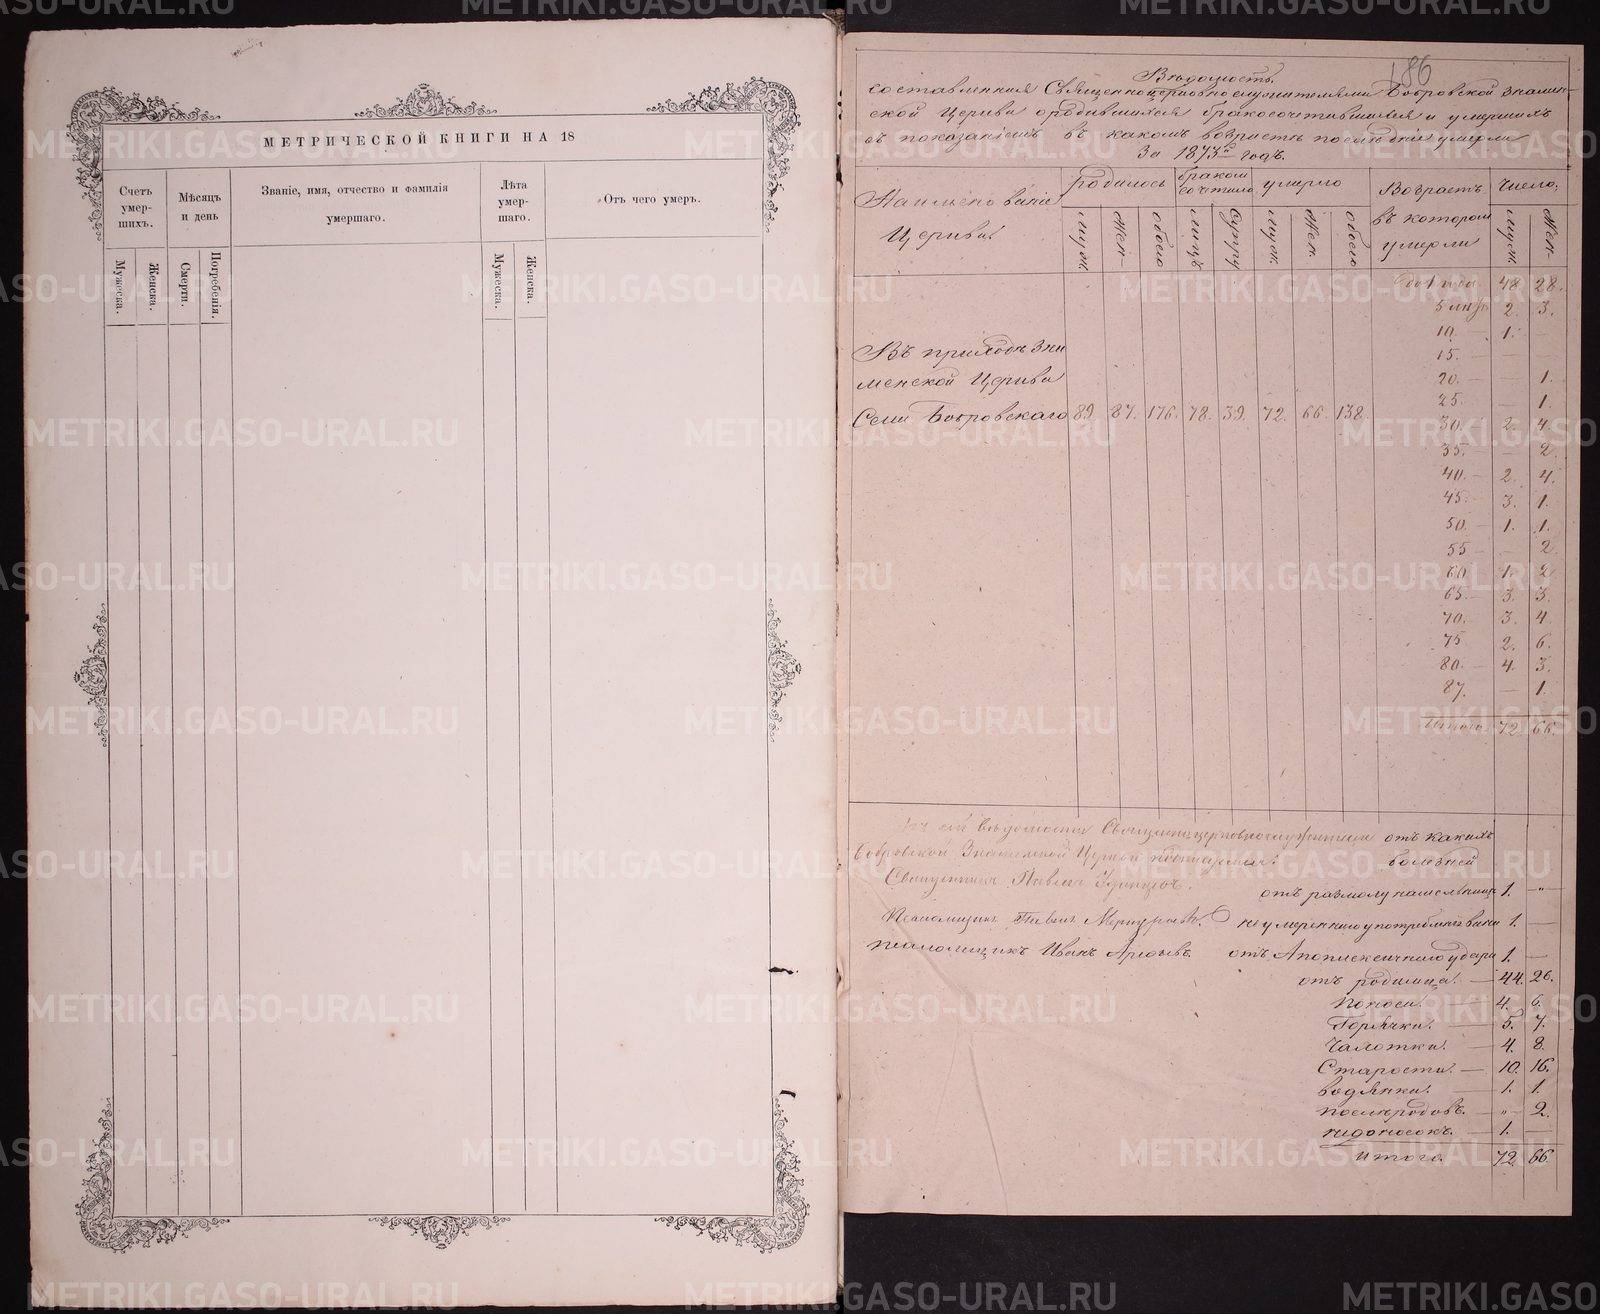 МЕТРИЧЕСКОЙ КНИГИ НА 18
Счетъ умер- шихъ.
Мѣсяцъ и день
Званіе, имя, отчество и фамилія умершаго.
Лѣта умер- шаго.
Отъ чего умеръ.
Мужеска.
Женска.
Смерти.
Погребенія.
Мужеска.
Женска.
186
Вѣдомость
составленная Священноцерковнослужителями Бобровской Знамен-
ской Церкви о родившихся бракосочетавшихся и умершихъ
съ показаніемъ въ какомъ возрастѣ послѣдніе умерли
За 1873й годъ.
Наименованіе Церкви
родилось
браком сочетало
умерло
Возрастъ въ котором умерли
Число
муж.
Жен.
обоего
лицъ
Супру
муж.
Жен.
обоего
муж.
Жен.
До 1 года. 48 28.
5 лѣтъ 2. 3.
10. — 1. —
15. — — —
20. — — 1.
25 — 1.
Въ приходѣ Зна
менской Церкви
Села Бобровскаго 89 87. 176. 78. 39. 72. 66. 138.
30. — 2. 4.
35. — 2.
40. — 2. 4.
45. 3. 1.
50. — 1. 1.
55 — — 2.
60 1. 2
65. — 3. 3.
70. — 3. 4.
75 2. 6.
80. — 4. 3.
87. — 1.
Итого 72 66.
Къ сей вѣдомости Священноцерковнослужители
Бобровской Знаменской Церкви
Священникъ Павелъ
Псаломщикъ Павелъ
Псаломщикъ Иванъ
отъ какихъ
болезней
отъ 1. „
не умереннаго употребленія вина 1. —
отъ Апоплексичнаго удара 1. —
отъ родимца. — 44. 26.
Поноса. 4. 6.
Горячки. — 5. 7.
Чахотки. — 4. 8.
Старости. — 10. 16.
водянки. — 1. 1.
послѣродовъ. — „ 2.
недоносокъ. — 1. —
Итого. 72. 66
METRIKI.GASO-URAL.RU